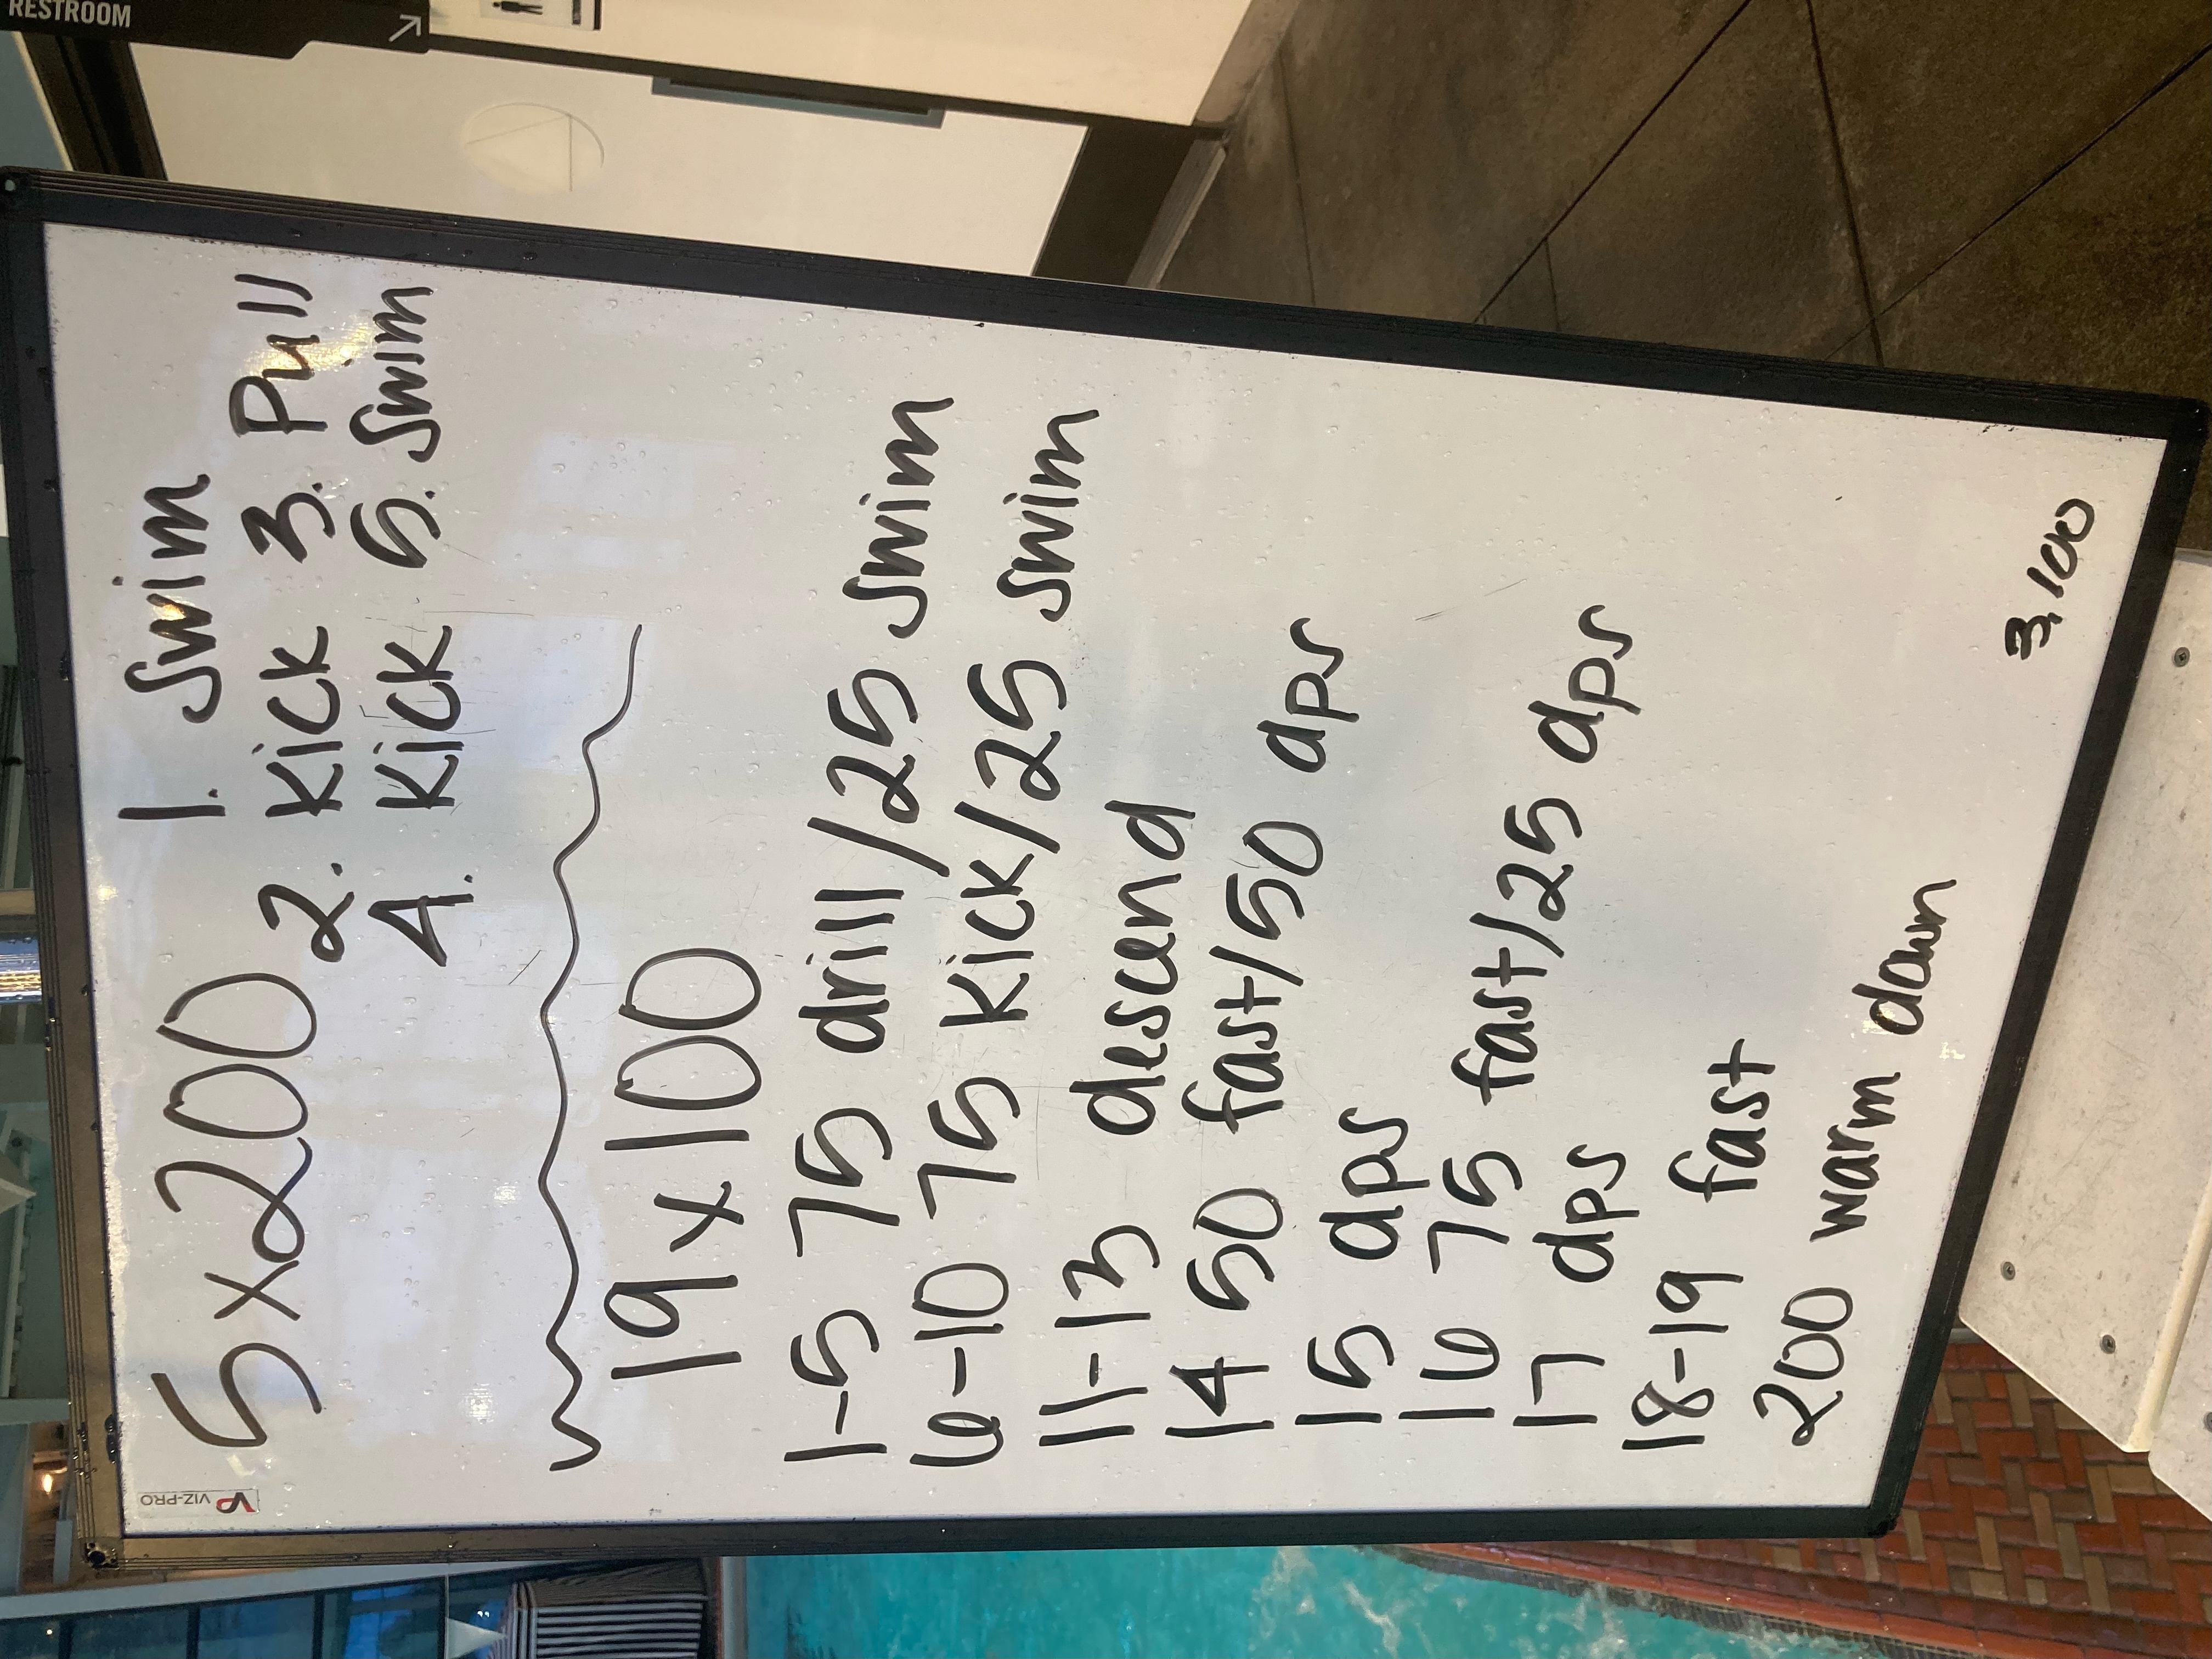 RESTROOM
VIZ-PRO
5x200 1. Swim
2. Kick 3. Pull
4. Kick 5. Swim
19 x 100
1-5 75 drill/25 swim
6-10 75 Kick/25 swim
11-13 descend
14 50 fast/50 dps
15 dps
16 75 fast/25 dps
17 dps
18-19 fast
200 warm down
3,100